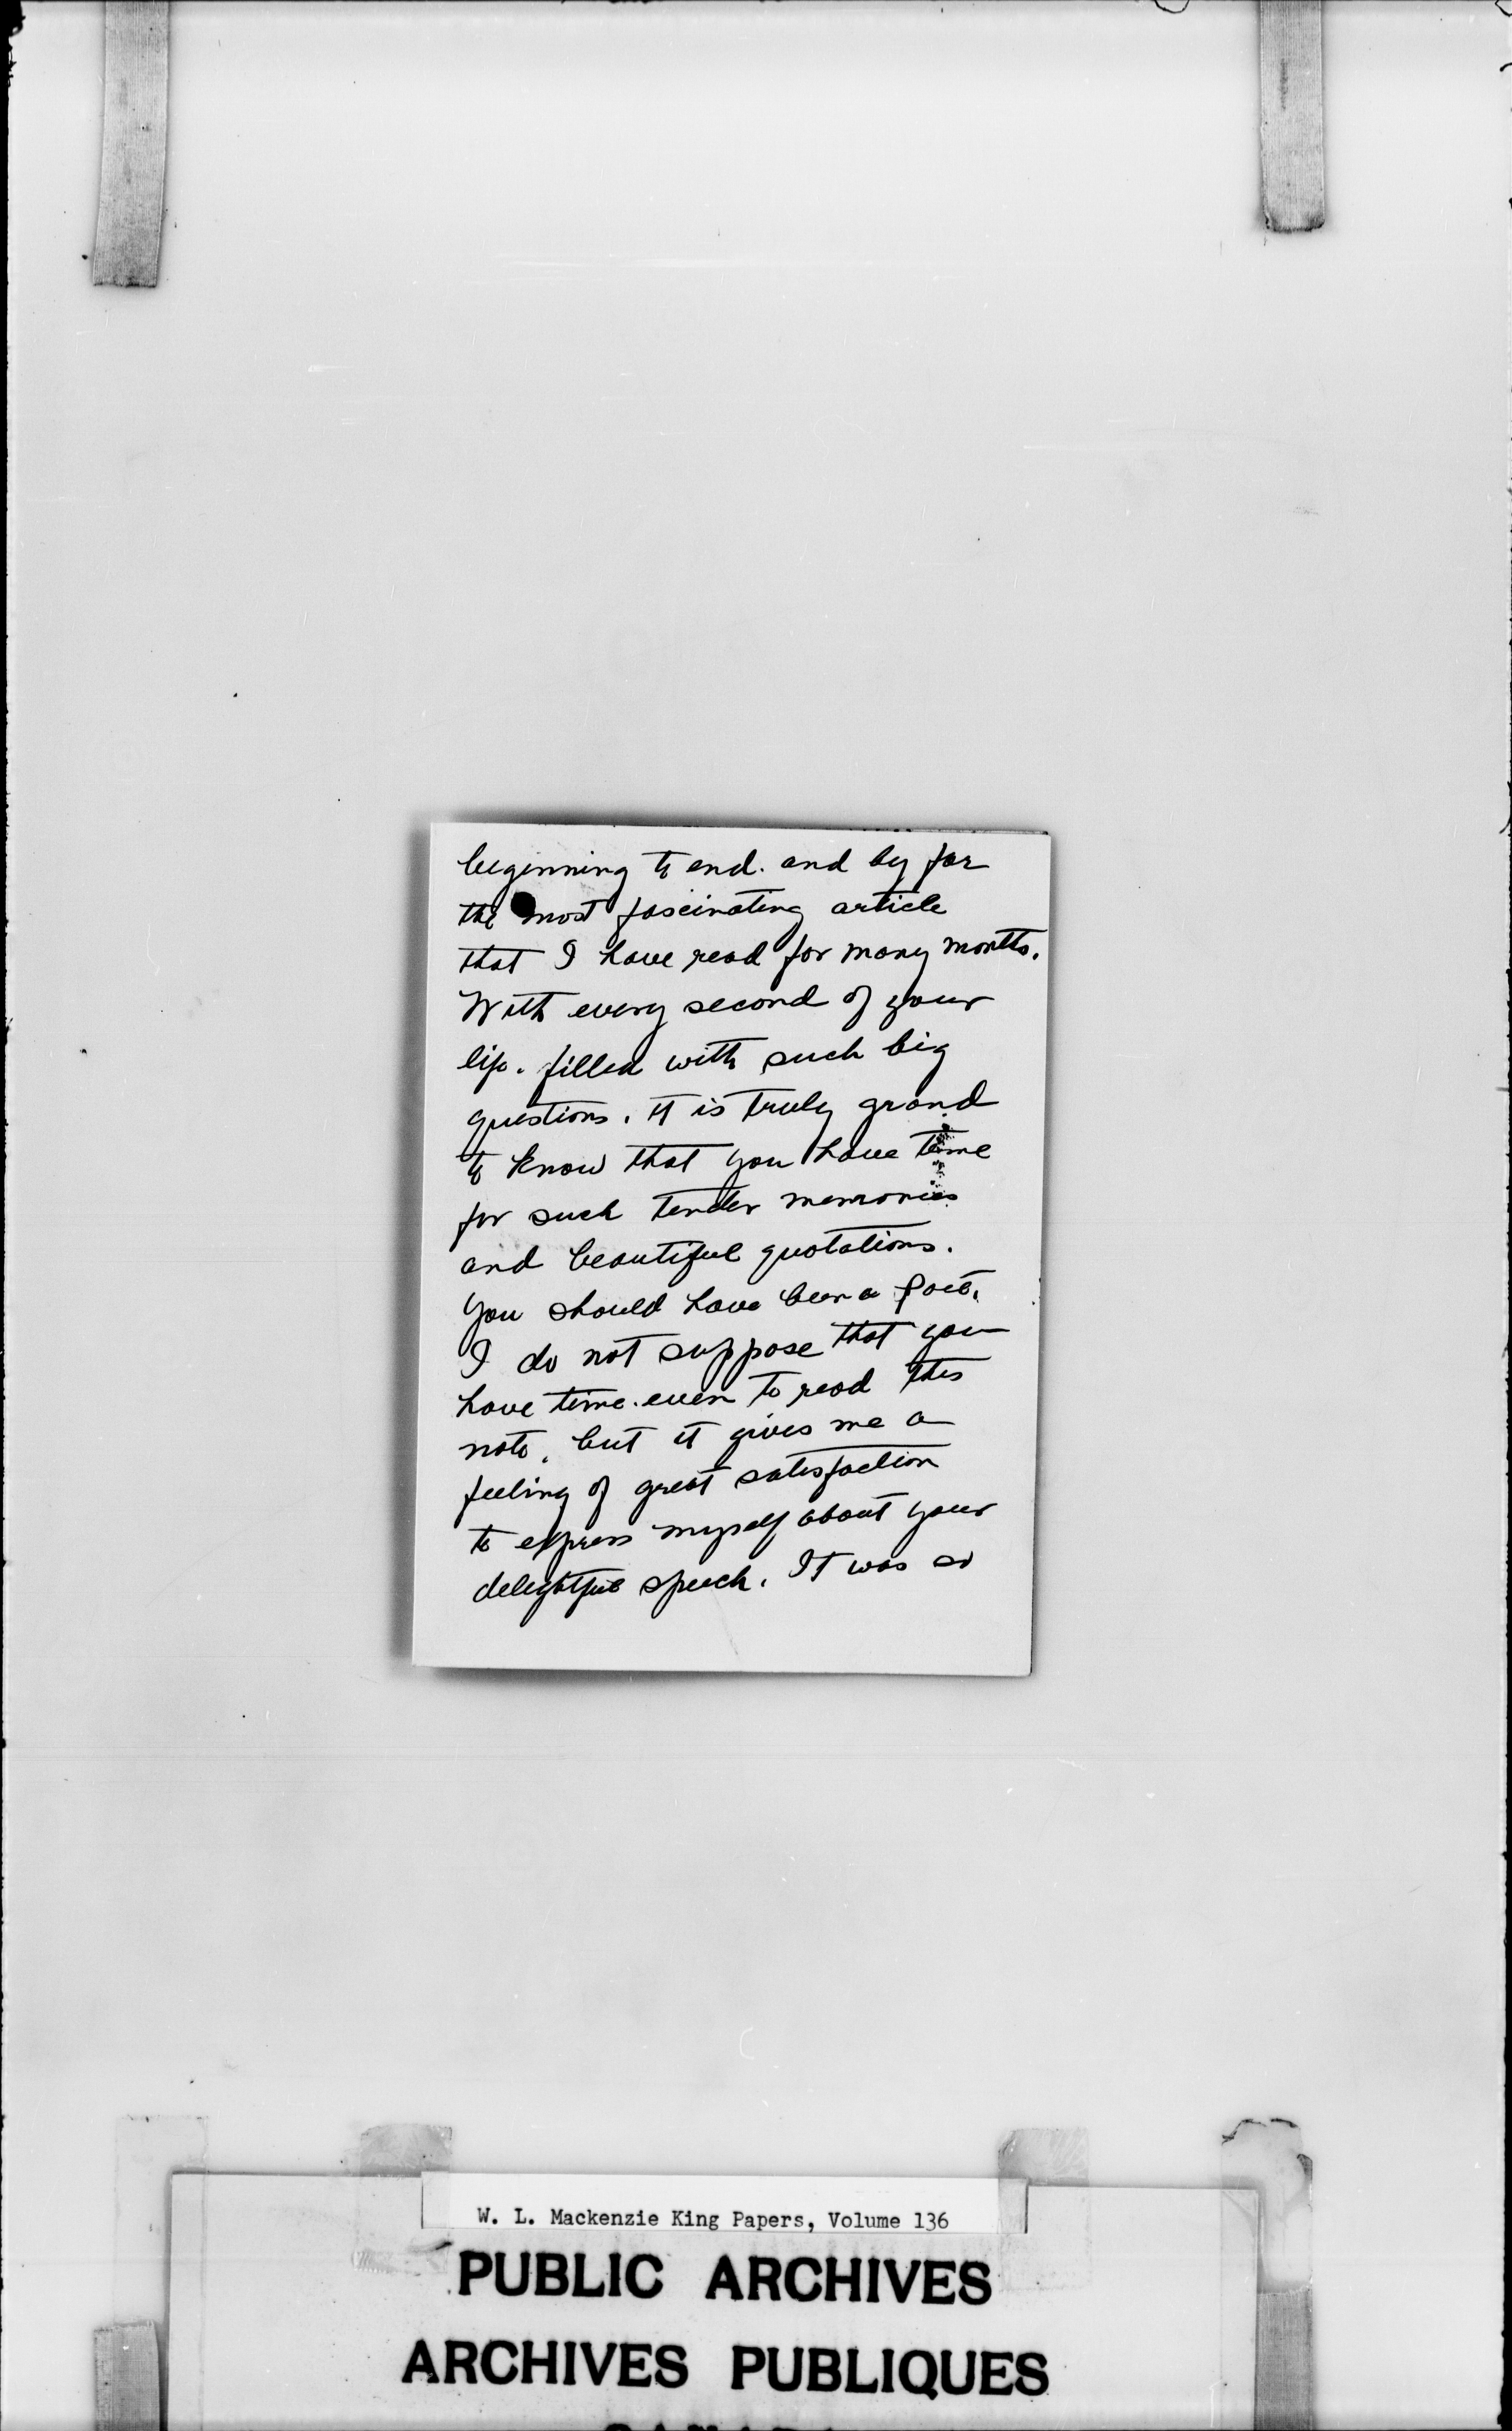 beginning to end. and by far
the most fascinating article
that I have read for many months.
With every second of your
life. filled with such big
questions. it is truly grand
to know that you have time
for such tender memories
and beautiful quotations.
You should have been a Poet.
I do not suppose that you
have time. even to read this
note. but it gives me a
feeling of great satisfaction
to express myself about your
delightful speech. It was so
W. L. Mackenzie King Papers, Volume 136
PUBLIC ARCHIVES
ARCHIVES PUBLIQUES